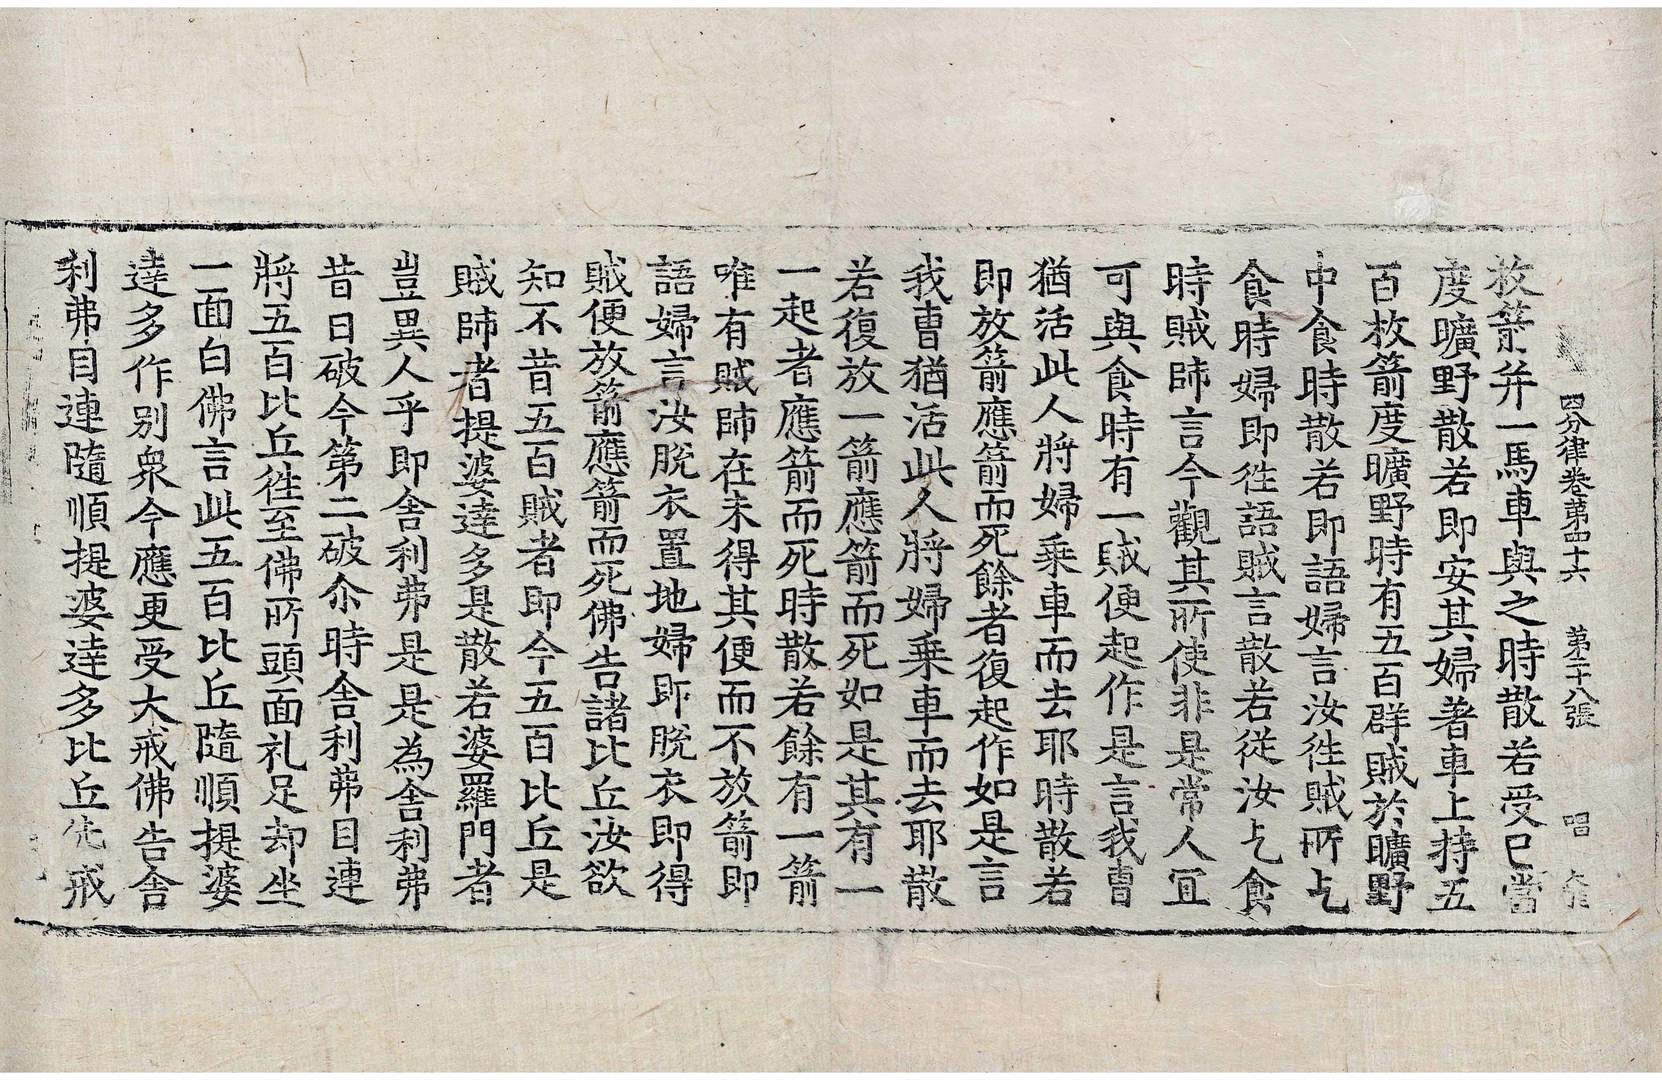 四分律卷第四十六 第二十八張 唱
枚箭并一馬車與之時散若受已當
度曠野散若即安其婦著車上持五
百枚箭度曠野時有五百群賊於曠野
中食時散若即語婦言汝徃賊所乞
食時婦即徃語賊言散若從汝乞食
時賊師言今觀其所使非是常人冝
可與食時有一賊便起作是言我曹
猶活此人將婦乗車而去耶時散若
即放箭應箭而死餘者復起作如是言
我曹猶活此人將婦乗車而去耶散
若復放一箭應箭而死如是其有一
一起者應箭而死時散若餘有一箭
唯有賊師在未得其便而不放箭即
語婦言汝脫衣置地婦即脫衣即得
賊便放箭應箭而死佛告諸比丘汝欲
知不昔五百賊者即今五百比丘是
賊師者提婆達多是散若婆羅門者
豈異人乎即舎利弗是是為舎利弗
昔日破今第二破尒時舎利弗目連
將五百比丘徃至佛所頭面礼足却坐
一面白佛言此五百比丘隨順提婆
達多作別衆今應更受大戒佛告舎
利弗目連隨順提婆達多比丘先戒